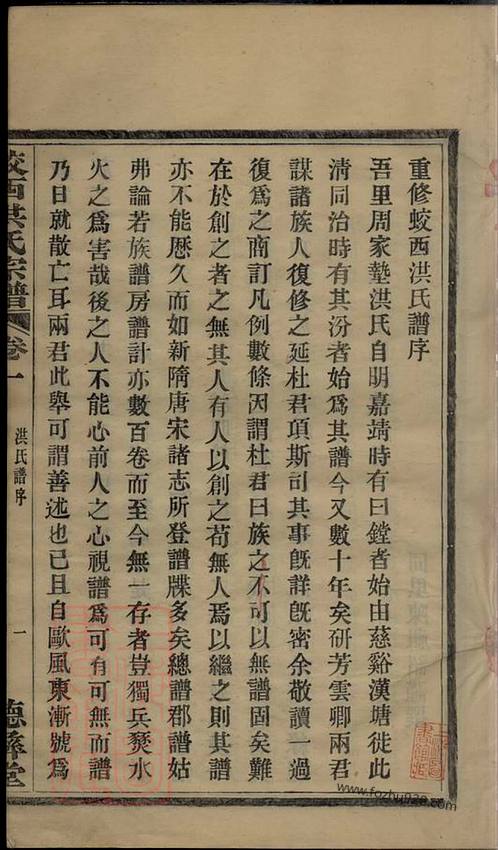 重修蛟西洪氏譜序
吾里周家墊洪氏自明嘉靖時有曰鏜者始由慈谿漢塘徙此
清同治時有其汾者始爲其譜今又數十年矣研芳雲卿兩君
謀諸族人復修之延杜君項斯司其事旣詳旣密余敬讀一過
復爲之商訂凡例數條因謂杜君曰族之不可以無譜固矣難
在於創之者之無其人有人以創之苟無人焉以繼之則其譜
亦不能歷久而如新隋唐宋諸志所登譜牒多矣總譜郡譜姑
弗論若族譜房譜計亦數百卷而至今無一存者豈獨兵燹水
火之爲害哉後之人不能心前人之心視譜爲可有可無而譜
乃日就散亡耳兩君此舉可謂善述也已且自歐風東漸號爲
蛟西洪氏宗譜
卷一
洪氏譜序
一
德彝堂
www.fozhu920.com